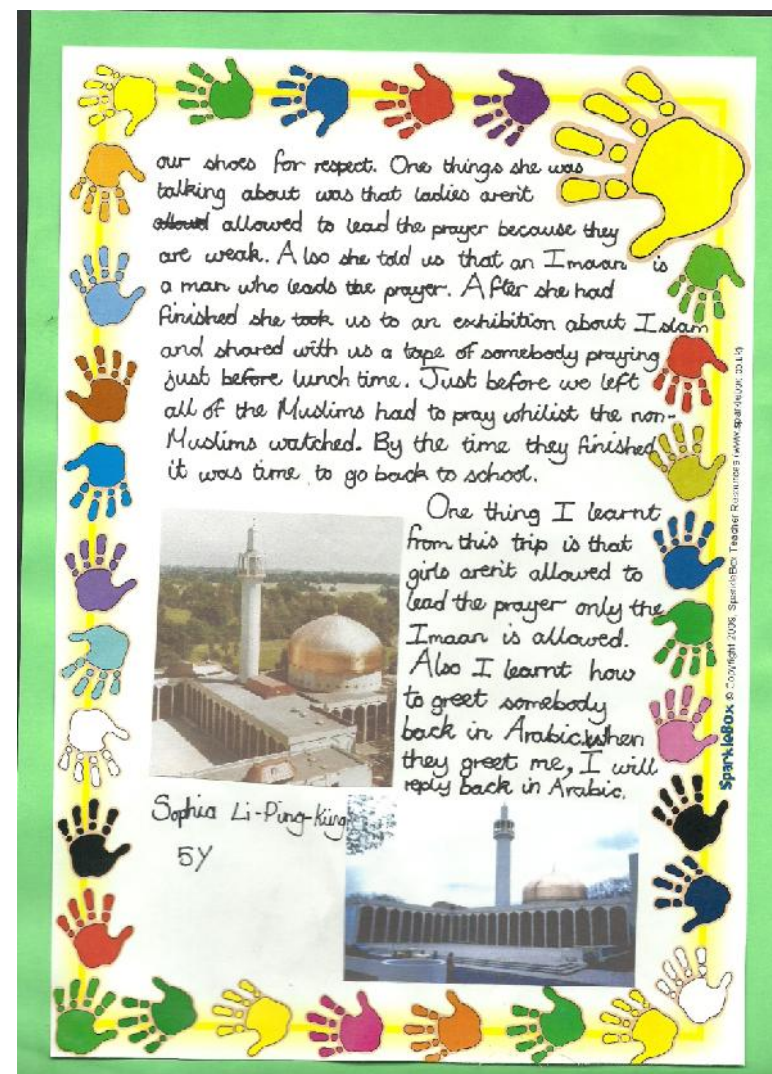 our shoes for respect. One things she was
talking about was that ladies arent
allowed allowed to lead the prayer because they
are weak. Also she told us that an Imaan is
a man who leads the prayer. After she had
finished she took us to an exhibition about Islam
and shared with us a tape of somebody praying
just before lunch time. Just before we left
all of the Muslims had to pray whilist the non-
Muslims watched. By the time they finished
it was time to go back to school.
One thing I learnt
from this trip is that
girls arent allowed to
lead the prayer only the
Imaan is allowed.
Also I learnt how
to greet somebody
back in Arabic.When
they greet me, I will
reply back in Arabic.
Sophia Li-Ping-Kung
5Y
SparkleBox © Copyright 2006, SparkleBox Teacher Resources (www.sparklebox.co.uk)